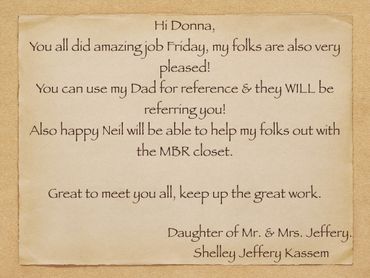 Hi Donna,
You all did amazing job Friday, my folks are also very
pleased!
You can use my Dad for reference & they WILL be
referring you!
Also happy Neil will be able to help my folks out with
the MBR closet.
Great to meet you all, keep up the great work.
Daughter of Mr. & Mrs. Jeffery.
Shelley Jeffery Kassem